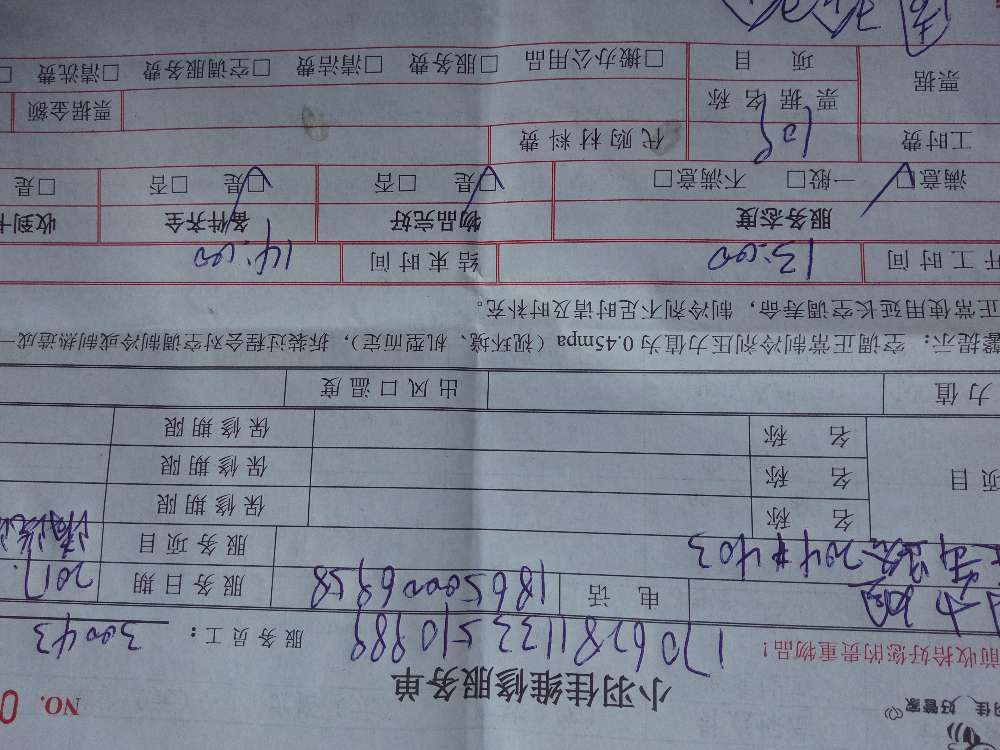 羽佳 好管家
NO. 0
小羽佳维修服务单
前收拾好您的贵重物品！
170628113251098
服务员工： 30043
电 话 18650006958 服务日期 2017.
204#403 服务项目
项目 名 称 保修期限
名 称 保修期限
名 称 保修期限
力值 出风口温度
馨提示：空调正常制冷剂压力值为 0.45mpa（视环境、机型而定），拆装过程会对空调制冷或制热造成一
正常使用延长空调寿命，制冷剂不足时请及时补充。
开工时间 13:00 结束时间 14:00
服务态度 物品完好 备件齐全 收到
满意□ 一般□ 不满意□ □是 □否 □是 □否 □是
工时费 代购材料费
票据 票据名称 票据金额
项 目 □搬办公用品 □服务费 □清洁费 □空调服务费 □清洗费